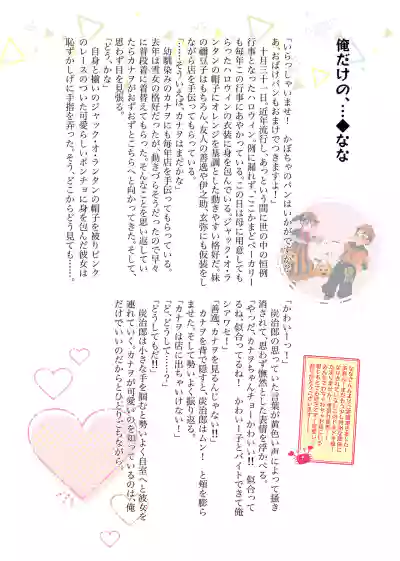 俺だけの、…◆なな
「いらっしゃいませ！　かぼちゃのパンはいかがですか？
あ、おばけパンもおまけつきますよ！」
十月三十一日、近年流行し、あっという間に世の中の恒例
行事となったハロウィン。例に漏れず、ここかまどベーカリー
も毎年この行事にあやかっている。この日は母に用意しても
らったハロウィンの衣装に身を包んでいる。ジャック・オ・ラ
ンタンの帽子にオレンジを基調とした動きやすい格好だ。妹
の禰豆子はもちろん、友人の善逸や伊之助、玄弥にも仮装をし
ながら店を手伝ってもらっている。
「……そういえば、カナヲはまだかな」
幼馴染みのカナヲにも毎年店を手伝ってもらっている。
去年は雪女の格好だったが、動きづらそうだったので早々
に普段着に着替えてもらった。そんなことを思い返してい
たらカナヲがおずおずとこちらへと向かってきた。そして、
思わず目を見張る。
「どう、かな」
自身と揃いのジャック・オ・ランタンの帽子を被りピンク
のレースのついた可愛らしいポンチョに身を包んだ彼女は
恥ずかしげに手指を弄った。そう、どこからどう見ても……。
「かわいーっ！」
炭治郎の思っていた言葉が黄色い声によって掻き
消されて、思わず憮然とした表情を浮かべる。
「やっだ、カナヲちゃんチョーかわいい!!　似合って
るね、似合ってるね！　かわいー子とバイトできて俺
シアワセ！」
「善逸、カナヲを見るんじゃない!!」
カナヲを背で隠すと、炭治郎はムン！　と頬を膨ら
ませた。そして勢いよく振り返る。
「カナヲは店に出ちゃいけない！」
「ど、どうして……？」
「どうしても!!」
炭治郎は小さな手を掴むと勢いよく自室へと彼女を
連れていく。カナヲが可愛いのを知っているのは、俺
だけでいいのだからとひとりごちながら。